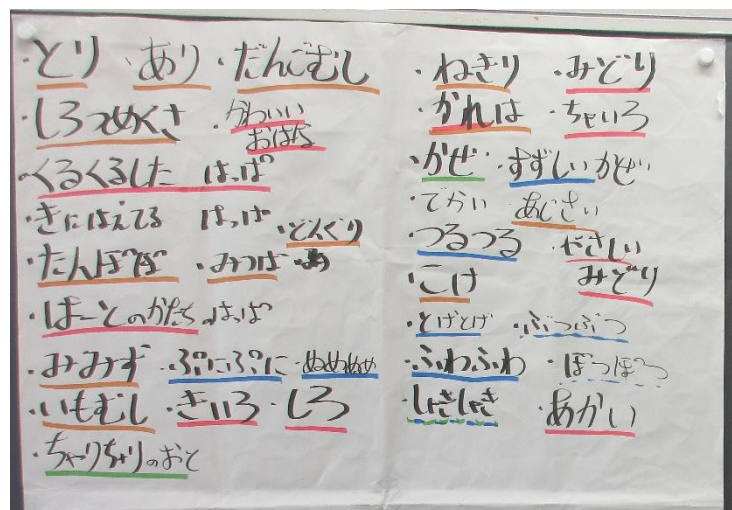 ・とり ・あり ・だんごむし
・しろつめくさ ・かわいい
おはな
・くるくるした はっぱ
・きにはえてる はっぱ
・どんぐり
・たんぽぽ ・みつば
・はーとのかたちのはっぱ
・みみず ・ぷにぷに ・ぬめぬめ
・いもむし ・きいろ ・しろ
・ちゃりちゃりのおと
・ねきり ・みどり
・かれは ・ちゃいろ
・かぜ ・すずしいかぜ
・でかい あじさい
・つるつる ・やさしい
みどり
・こけ
・とげとげ ・ぶつぶつ
・ふわふわ ・ぼつぼつ
・しゃきしゃき ・あかい